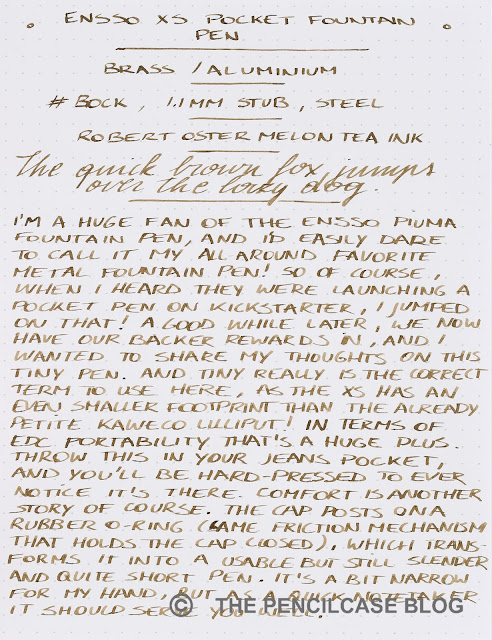 ENSSO XS POCKET FOUNTAIN
PEN
BRASS / ALUMINIUM
# BOCK, 1.1MM STUB, STEEL
ROBERT OSTER MELON TEA INK
The quick brown fox jumps
over the lazy dog.
I'M A HUGE FAN OF THE ENSSO PIUMA
FOUNTAIN PEN, AND I'D EASILY DARE
TO CALL IT MY ALL-AROUND FAVORITE
METAL FOUNTAIN PEN! SO OF COURSE,
WHEN I HEARD THEY WERE LAUNCHING A
POCKET PEN ON KICKSTARTER, I JUMPED
ON THAT! A GOOD WHILE LATER, WE NOW
HAVE OUR BACKER REWARDS IN, AND I
WANTED TO SHARE MY THOUGHTS ON THIS
TINY PEN. AND TINY REALLY IS THE CORRECT
TERM TO USE HERE, AS THE XS HAS AN
EVEN SMALLER FOOTPRINT THAN THE ALREADY
PETITE KAWECO LILLIPUT! IN TERMS OF
EDC PORTABILITY THAT'S A HUGE PLUS.
THROW THIS IN YOUR JEANS POCKET,
AND YOU'LL BE HARD-PRESSED TO EVER
NOTICE IT'S THERE. COMFORT IS ANOTHER
STORY OF COURSE. THE CAP POSTS ON A
RUBBER O-RING (SAME FRICTION MECHANISM
THAT HOLDS THE CAP CLOSED), WHICH TRANS-
FORMS IT INTO A USABLE BUT STILL SLENDER
AND QUITE SHORT PEN. IT'S A BIT NARROW
FOR MY HAND, BUT AS A QUICK NOTETAKER
IT SHOULD SERVE YOU WELL.
© THE PENCILCASE BLOG